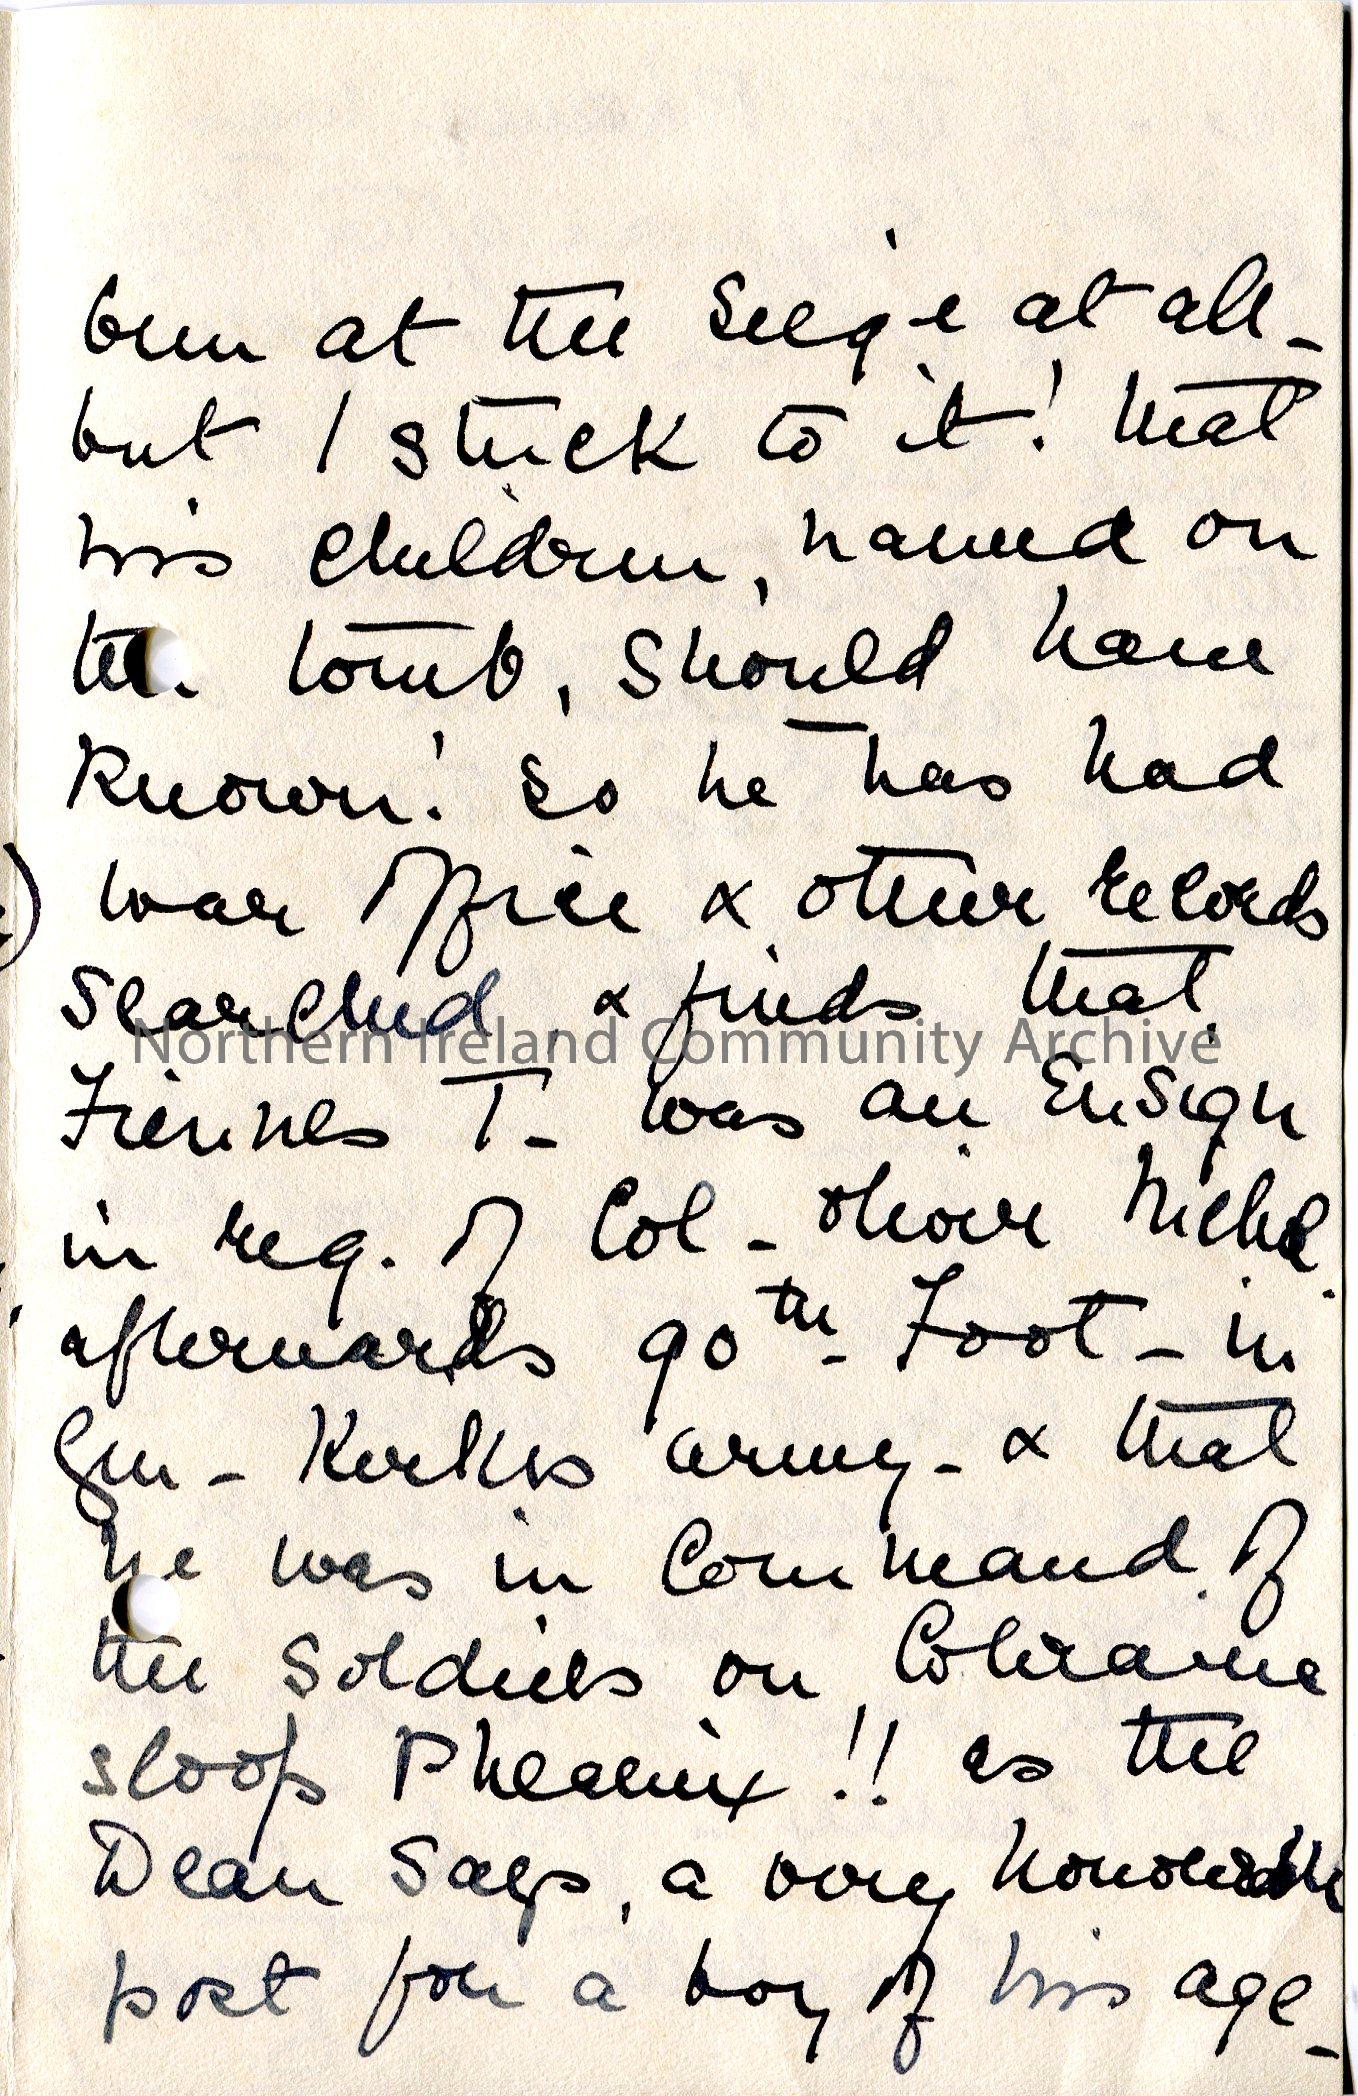 been at the Seige at all -
but I stuck to it! that
his children, named on
the tomb, should have
known! So he has had
War Office & other records
Searched, & finds that,
Northern Ireland Community Archive
Fiennes T- was an Ensign
in reg. of Col - Oliver Nichol.
afterwards 90th - Foot - in
Gen - Kerkes army - & that
he was in Command of
the Soldiers on Coleraine
sloop Pheaenix!! as the
Dean Says, a very honourable
post for a boy of his age -